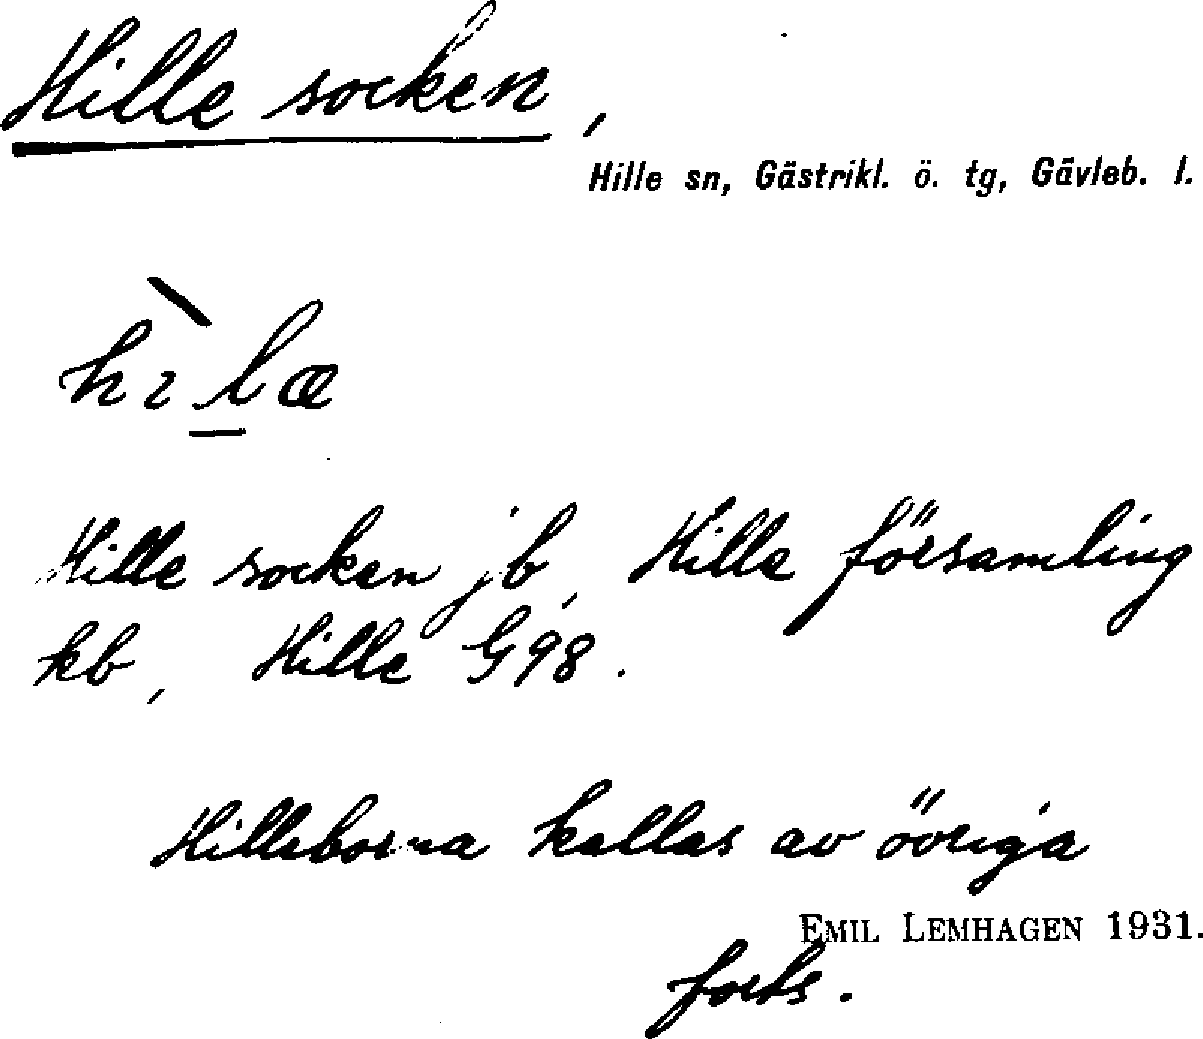 Hille socken,
Hille sn, Gästrikl. ö. tg, Gävleb. l.
hìl̲æ
Hille socken jb, Hille församling
kb, Hille G98.
Hilleborna kallas av övriga
EMIL LEMHAGEN 1931.
forts.